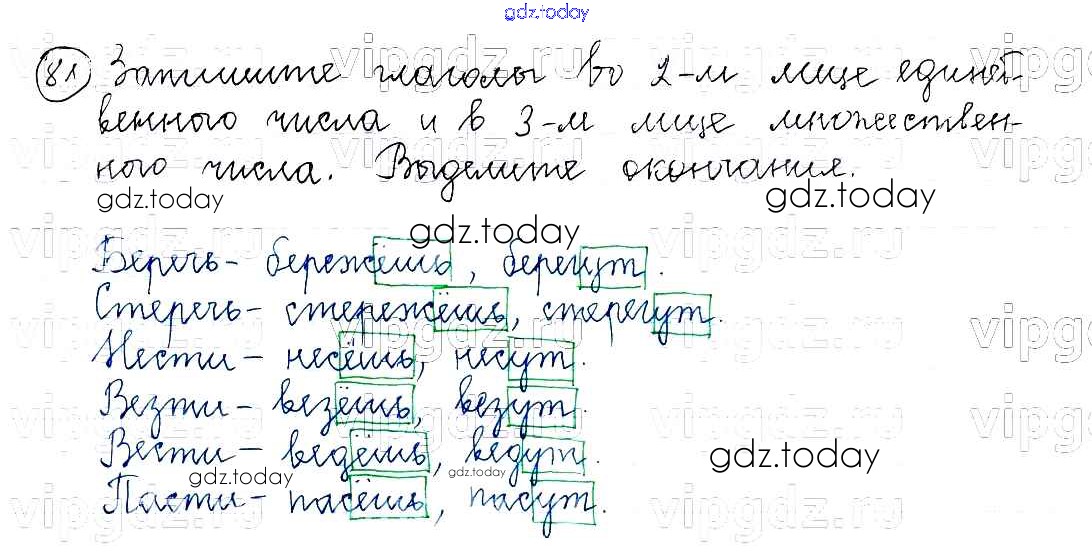 gdz.today
81 Запишите глаголы во 2-м лице единст-
венного числа и в 3-м лице множествен-
ного числа. Выделите окончания.
gdz.today gdz.today
gdz.today
Беречь- бережёшь, берегут.
Стеречь- стережёшь, стерегут.
Нести- несёшь, несут.
Везти- везёшь, везут.
Вести- ведёшь, ведут.
gdz.today gdz.today gdz.today
Пасти- пасёшь, пасут.
vipgdz.ru